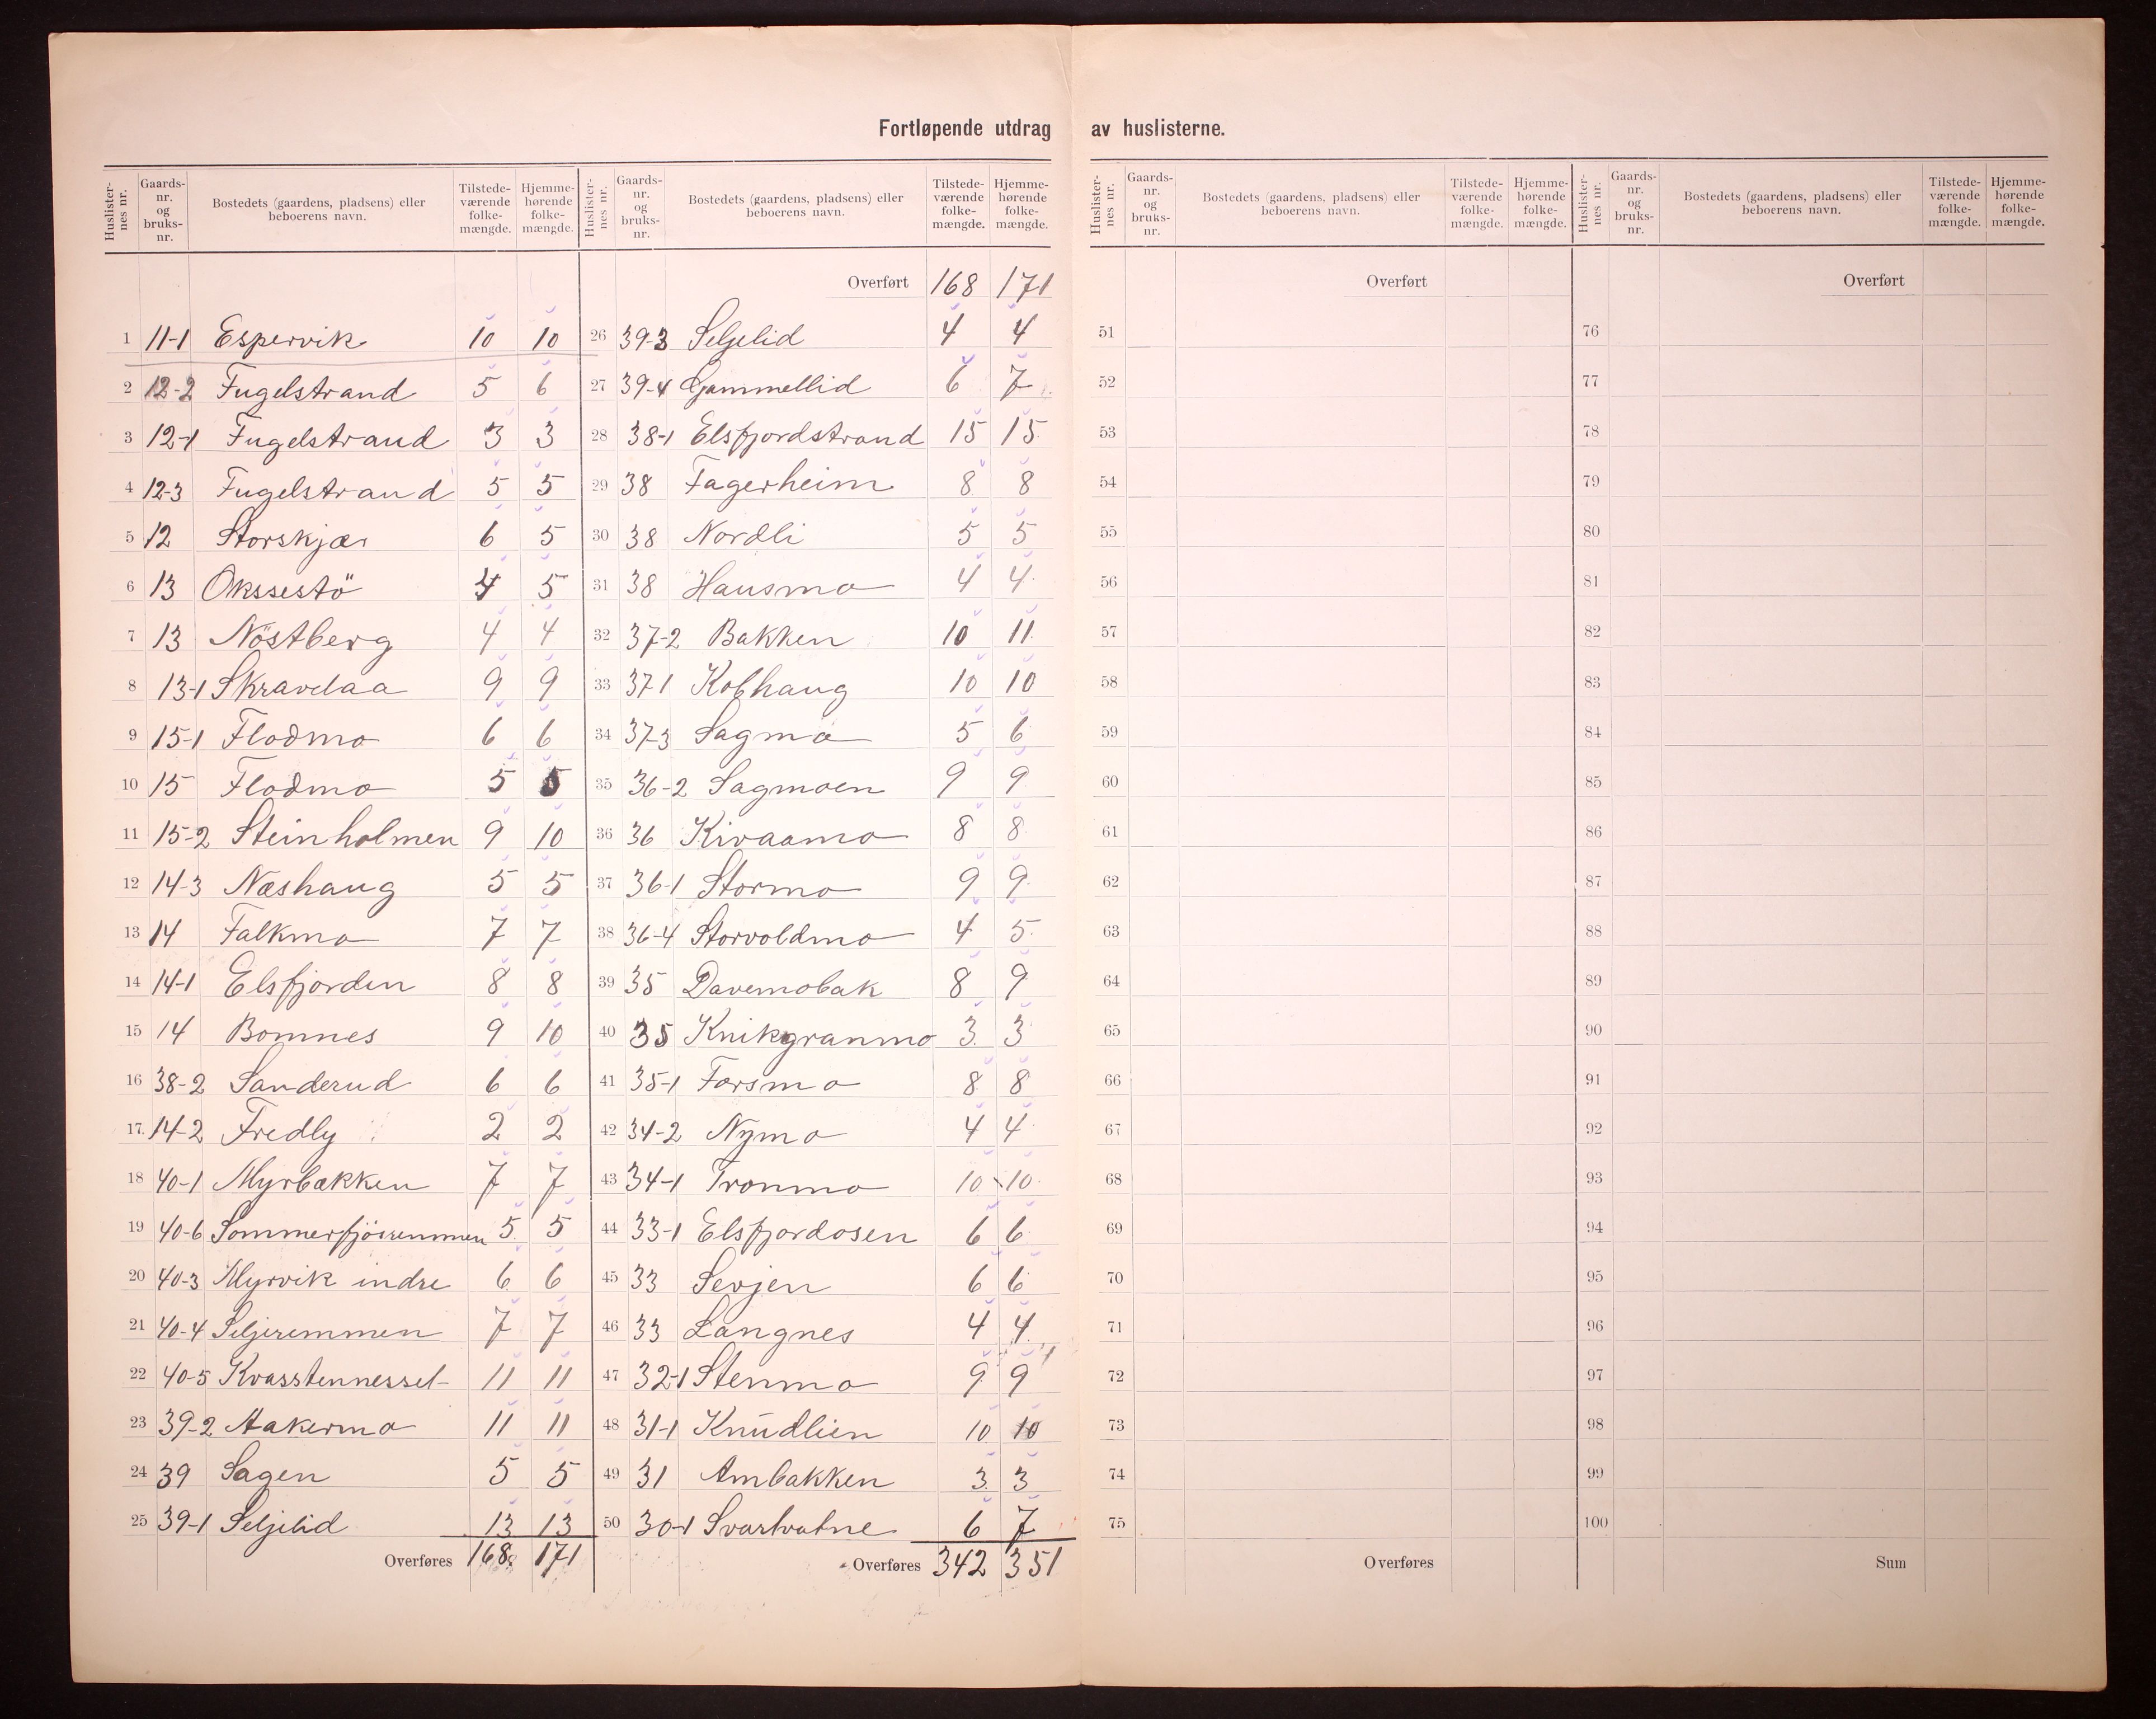 Fortløpende utdrag av huslisterne.
Huslister-nes nr. Gaards-nr. og bruks-nr. Bostedets (gaardens, pladsens) eller beboerens navn. Tilstede-værende folke-mængde. Hjemme-hørende folke-mængde.
1 11-1 Espervik 10 10
2 12-2 Fugelstrand 5 6
3 12-1 Fugelstrand 3 3
4 12-3 Fugelstrand 5 5
5 12 Storskjær 6 5
6 13 Okssestö 4 5
7 13 Nöstberg 4 4
8 13-1 Skravlaa 9 9
9 15-1 Flodmo 6 6
10 15 Flodmo 5 5
11 15-2 Steinholmen 9 10
12 14-3 Næshaug 5 5
13 14 Falkmo 7 7
14 14-1 Elsfjorden 8 8
15 14 Bomnes 9 10
16 38-2 Sanderud 6 6
17. 14-2 Fredly 2 2
18 40-1 Myrbakken 7 7
19 40-6 5 5
20 40-3 Myrvik indre 6 6
21 40-4 Seljeremmen 7 7
22 40-5 Kvasstennesset 11 11
23 39-2 Aakermo 11 11
24 39 Sagen 5 5
25 39-1 Seljelid 13 13
Overføres 168 171
Huslister-nes nr. Gaards-nr. og bruks-nr. Bostedets (gaardens, pladsens) eller beboerens navn. Tilstede-værende folke-mængde. Hjemme-hørende folke-mængde.
Overført 168 171
26 39-3 Seljelid 4 4
27 39-4 Gammellid 6 7
28 38-1 Elsfjordstrand 15 15
29 38 Fagerheim 8 8
30 38 Nordli 5 5
31 38 Hausmo 4 4
32 37-2 Bakken 10 11
33 37 1 Kolhaug 10 10
34 37-3 Sagmo 5 6
35 36-2 Sagmoen 9 9
36 36 Kivaamo 8 8
37 36-1 Stormo 9 9
38 36-4 Storvoldmo 4 5
39 35 Davemobak 8 9
40 35 Knikgranmo 3 3
41 35-1 Forsmo 8 8
42 34-2 Nymo 4 4
43 34-1 Tronmo 10 10
44 33-1 Elsfjordosen 6 6
45 33 Sevjen 6 6
46 33 Langnes 4 4
47 32-1 Stenmo 9 9
48 31-1 Knudlien 10 10
49 31 Ambakken 3 3
50 30-1 Svartvatne 6 7
Overføres 342 351
Huslister-nes nr. Gaards-nr. og bruks-nr. Bostedets (gaardens, pladsens) eller beboerens navn. Tilstede-værende folke-mængde. Hjemme-hørende folke-mængde.
Overført
51
52
53
54
55
56
57
58
59
60
61
62
63
64
65
66
67
68
69
70
71
72
73
74
75
Overføres
Huslister-nes nr. Gaards-nr. og bruks-nr. Bostedets (gaardens, pladsens) eller beboerens navn. Tilstede-værende folke-mængde. Hjemme-hørende folke-mængde.
Overført
76
77
78
79
80
81
82
83
84
85
86
87
88
89
90
91
92
93
94
95
96
97
98
99
100
Sum